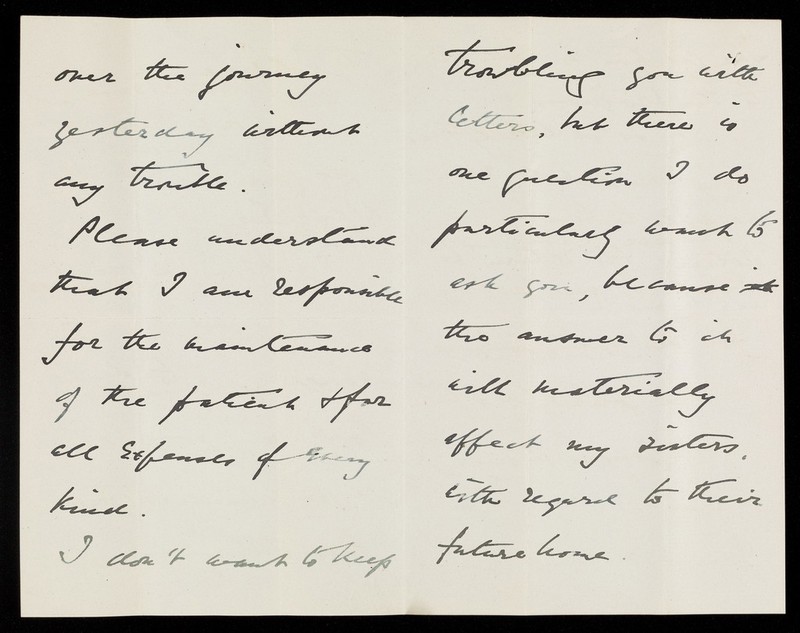 over the journey
yesterday without
any trouble.
Please understand
that I am responsible
for the maintenance
of the patient & for
all expenses of every
kind.
I don't want to keep
troubling you with
letters, but there is
one question I do
particularly want to
ask you, because
the answer to it
will materially
affect my sisters,
with regard to their
future home.